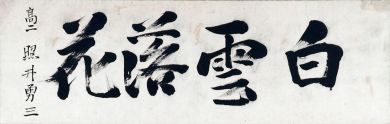 白雲落花
高二 照井勇三